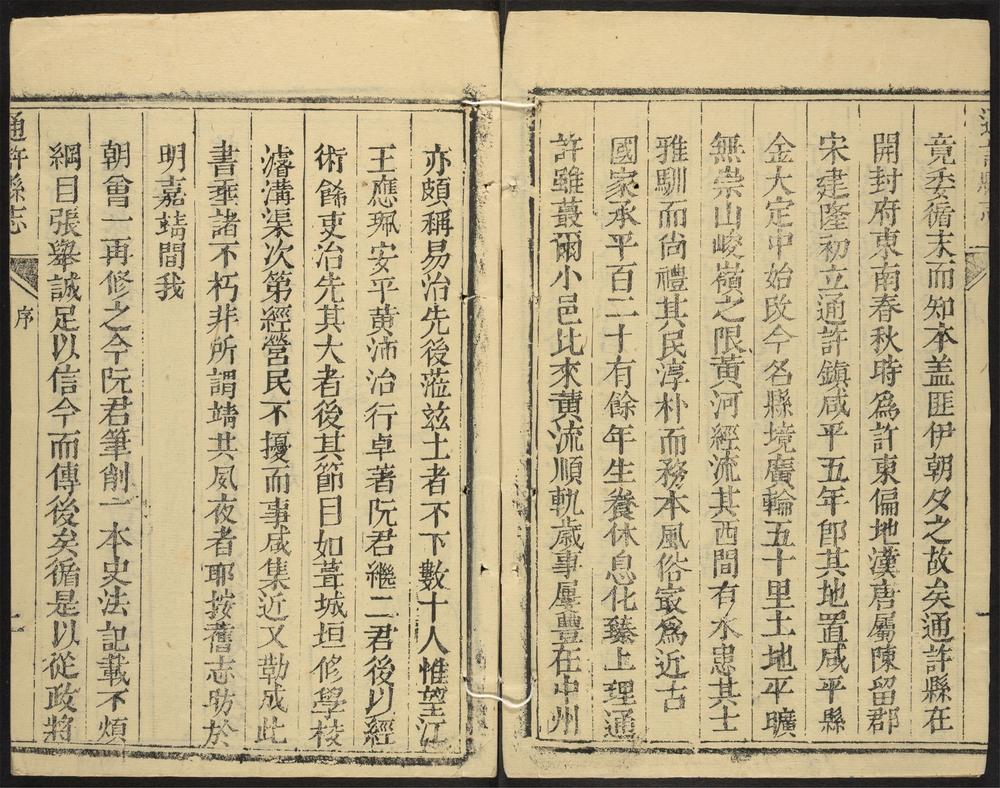 竟委循末而知本盖匪伊朝夕之故矣通許縣在
開封府東南春秋時為許東偏地漢唐屬陳留郡
宋建隆初立通許鎮咸平五年卽其地置咸平縣
金大定中始改今名縣境廣輪五十里土地平曠
無崇山峻嶺之限黃河經流其西間有水患其士
雅馴而尚禮其民淳朴而務本風俗㝡為近古
國家承平百二十有餘年生養休息化臻上理通
許雖蕞爾小邑比來黃流順軌歲事屢豐在中州
亦頗稱易治先後蒞兹土者不下數十人惟望江
王應珮安平黃沛治行卓著阮君繼二君後以經
術餙吏治先其大者後其節目如葺城垣修學校
濬溝渠次第經營民不擾而事咸集近又勒成此
書垂諸不朽非所謂靖共夙夜者耶按舊志昉於
明嘉靖間我
朝曾一再修之今阮君筆削一本史法記載不煩
綱目張舉誠足以信今而傳後矣循是以從政將
通許縣志
序